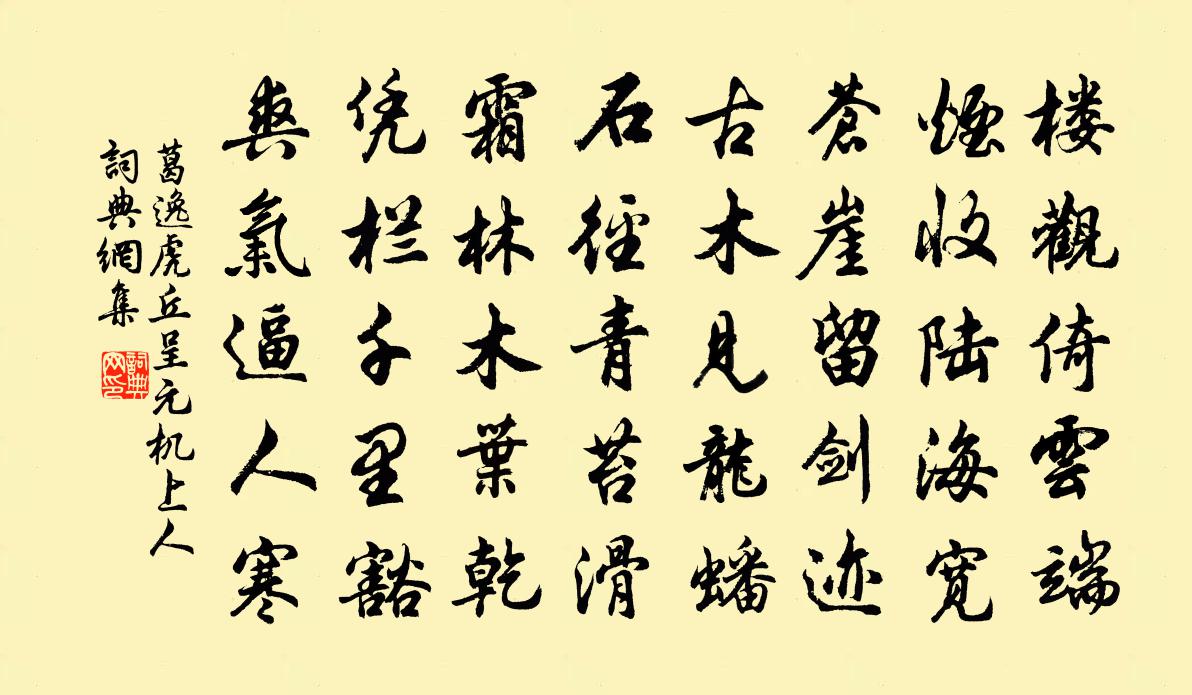 楼觀倚雲端
煙收陆海寛
蒼崖留剑迹
古木見龍蟠
石徑青苔滑
霜林木葉乾
凭栏千里豁
爽氣逼人寒
葛逸虎丘呈元机上人
詞典網集
詞典网印